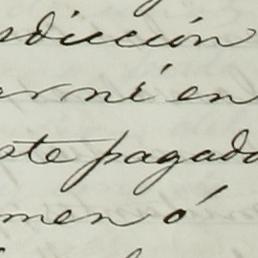 dicción
ni en
ste pagado
men ó